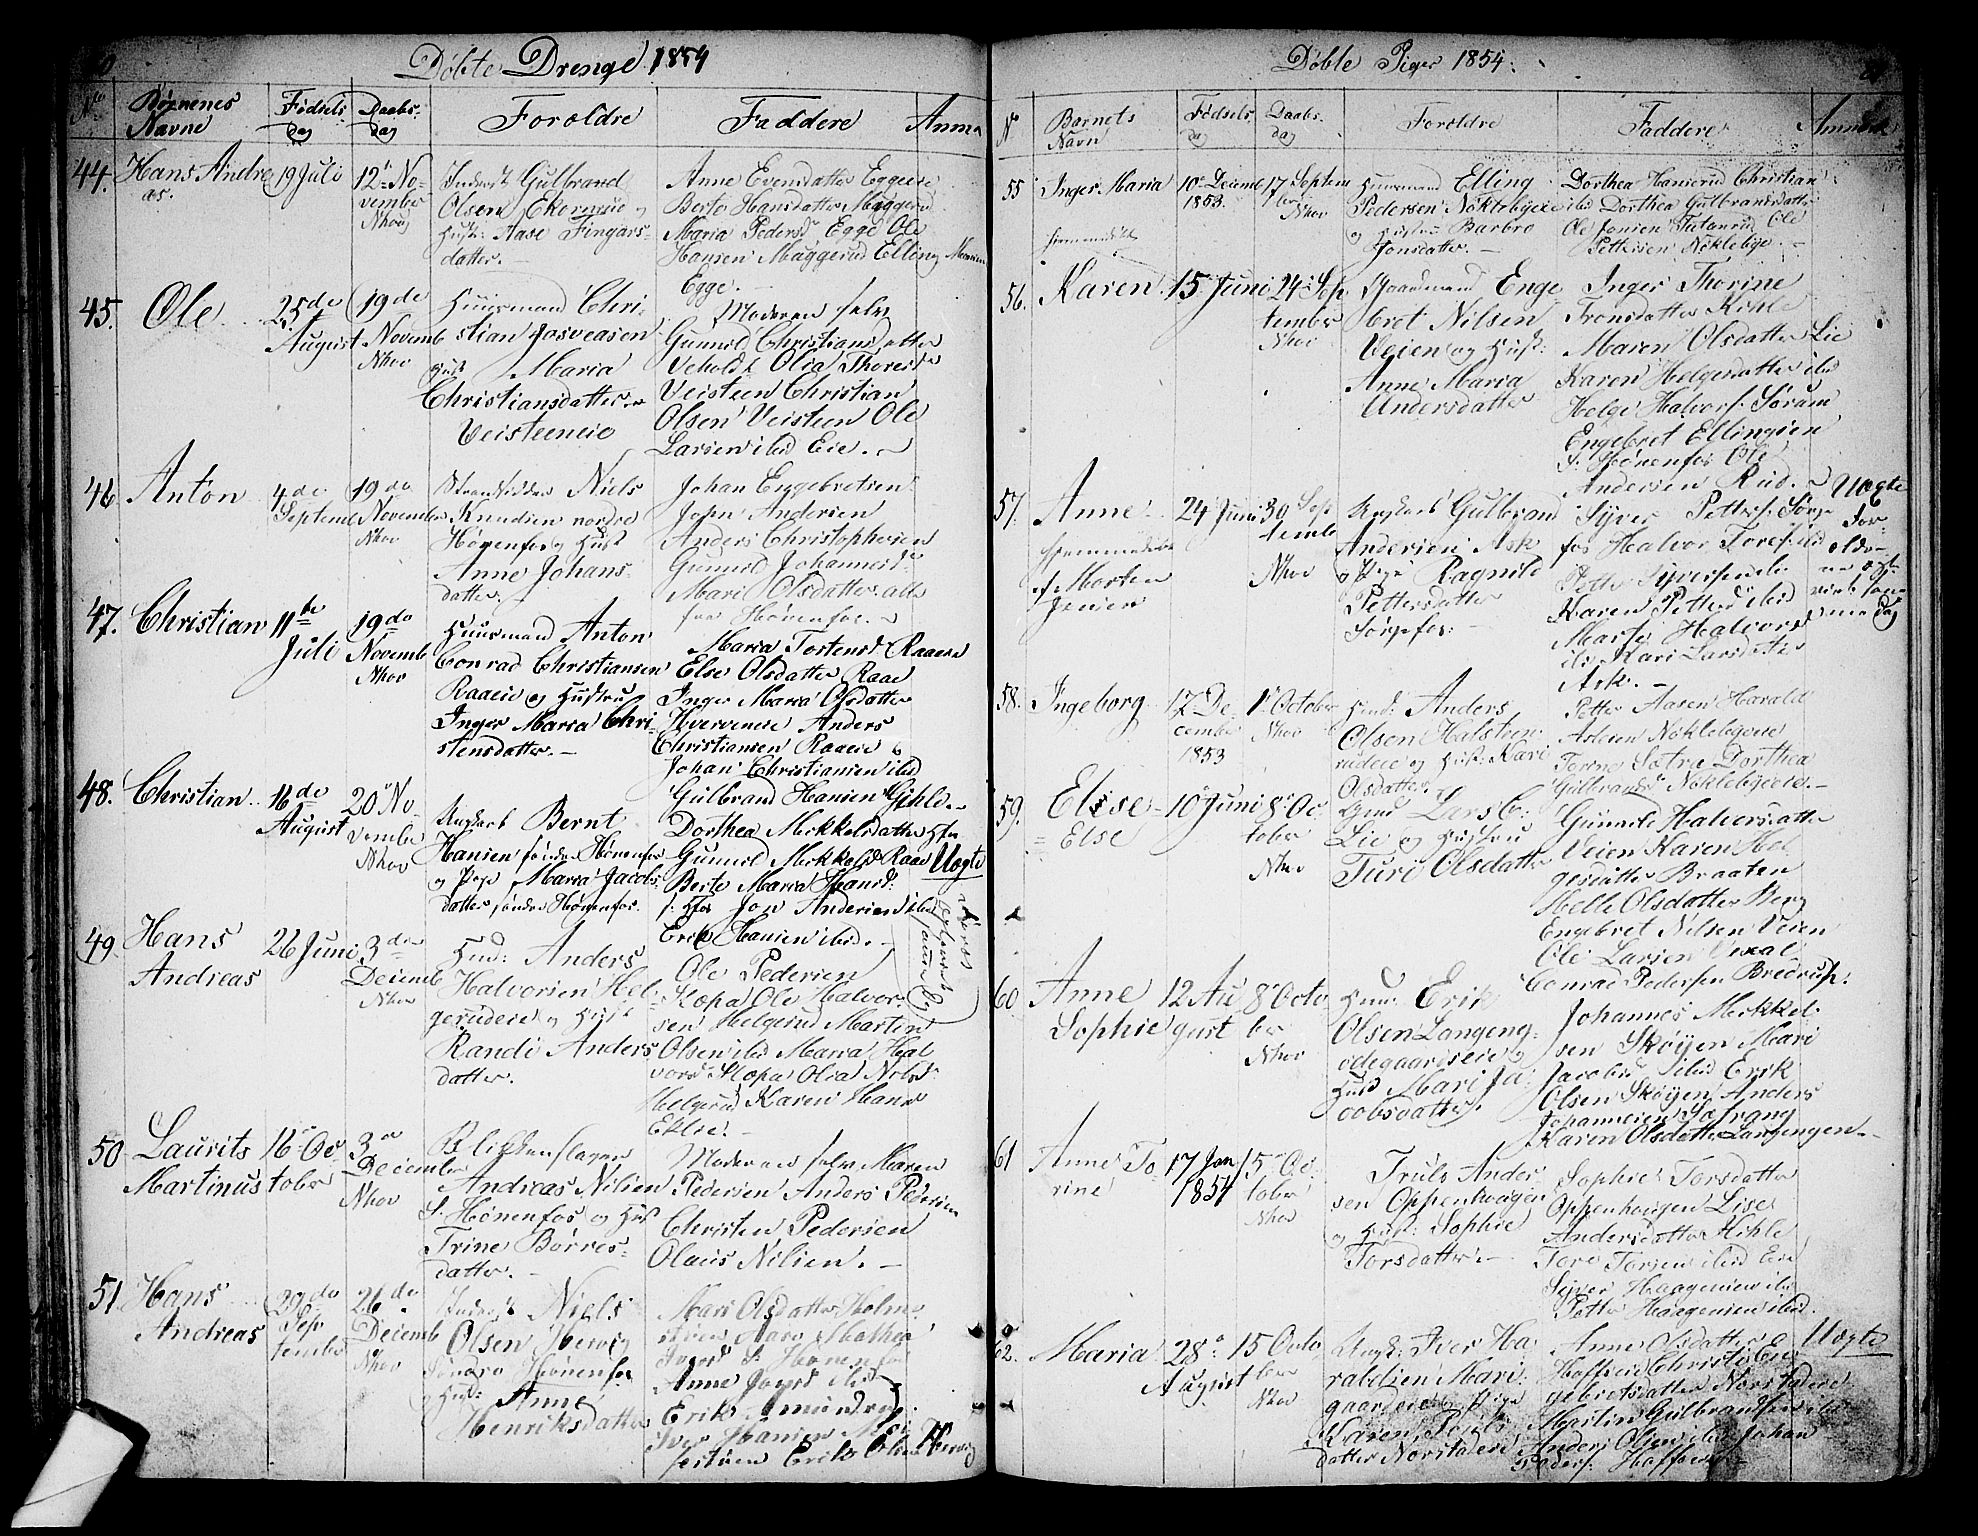 Døbte Drenge 1854
No
Børnenes Navne
Fødsels dag
Daabs dag
Foroldre
Faddere
Anm
44. Hans Andreas
19 Juli
12 November Nhov
Inderst Gulbrand
Olsen Ekorneie og
Hust: Aase Fingars-
datter.
Anne Evensdatter Eggeeie
Berte Hansdatter Maggerud
Maria Pedersd Egge Ole
Hansen Maggerud Elling
Egge.
45. Ole
25de August
19de Novemb Nhov
Huusmand Chri-
stian Josveasen
Hust Maria
Christiansdatter
Veisteeneie
Moderen selv
Gunnild Christiansdatter
Veholdt Olia Thoresd
Veisteen Christian
Olsen Veisteen Ole
Larsen ibid Eie.
46 Anton
4de Septemb
19de November Nhov
Niels
Knudsen nordre
Hønenfos og Hust
Anne Johans-
datter.
Johan Engebretsen
John Andersen
Anders Christophersen
Gunnild Johannesd
Mari Olsdatter alle
fra Hønenfos.
47. Christian
11te Juli
19de Novemb Nhov
Huusmand Anton
Conrad Christiansen
Raaeie og Hustru
Inger Maria Chri-
stensdatter.
Maria Torstensd Raaeie
Else Olsdatter Raae
Inger Maria Olsdatter
Hverveneie Anders
Christiansen Raaeie
Johan Christiansen ibid
48. Christian
16de August
20 November Nhov
Ungkarl Bernt
Hansen søndre Hønenfos
og Pige Maria Jacobs-
datter søndre Hønenfos.
Gulbrand Hansen Gihle
Dorthea Mikkelsdatter Hfos
Gunnild Mikkelsd Raae
Berte Maria Hansd:
s: Hfos Jon Andersen ibid
Erik Hansen ibid.
Uægte
49. Hans Andreas
26 Juni
3de Decemb Nhov
Huusd: Anders
Halvorsen Hel-
gerudeie og Hust
Randi Anders
datter.
Ole Pedersen
Stopa Ole Halvor-
sen Helgerud Martin
Olsen ibid Maria Hal
vorsd Stopa Olia Nilsd:
Helgerud Karen Hansd
Eklie.
50 Laurits Martinus
16 October
3de December Nhov
Blikkenslager
Andreas Nilsen
S. Hønenfos og Hust
Trine Børres-
datter.
Moderen selv Maren
Pedersen Anders Pedersen
Christen Pedersen
Olaus Nilsen.
51 Hans Andreas
29de September
26de Decemb Nhov
Inderst Niels
Olsen Hervig
Søndre Hønenfos
og Hust:
Anne
Henriksdatter
Mari Olsdatter Holm
Mathea
Iversd S. Hønenfos
Anne Iversd ibid
Erik Amundsen
Iver Hansen
Erik Olsen Hervig
Døbte Piger 1854.
No
Barnets Navn
Fødsels dag
Daabs dag
Foroldre
Faddere
Anmærk
55 Inger Maria
10 Decemb 1853.
17 September Nhov
Huusmand Elling
Pedersen Nøklebyeie
og Hustru Barbro
Jonsdatter.
Dorthea Hanserud Christian
ibid Dorthea Gulbrandsdatter
Ole Jonsen Tatanrud Ole
Pettersen Nøklebye.
56. Karen
15 Juni
24 September Nhov
Gaardmand Enge
bret Nilsen
Veien og Hust:
Anne Maria
Andersdatter
Inger Thorine
Tronsdatter Kihle
Maren Olsdatter Lie
Karen Helgesdatter ibid
Helge Halvors. Sørum
Engebret Ellingsen
S. Hønenfos Ole
Andersen Rud.
57. Anne
fremmedøbt
af Morten
Jensen
24 Juni
30 September Nhov
Ungkarl Gulbrand
Andersen Ask
og Pige Ragnild
Pettersdatter
Sørgefos.
Syver Petters. Sørge
fos Halvor Tores. ibid
Petter Syversen ibid
Karen Pettersd ibid
Marte Halvorsd
ib. Kari Larsdatter
Ask.
Uægte
For-
oldre-
ne ægt
viet sam
me dag
58. Ingeborg
17 December 1853
1 October Nhov
Huusd: Anders
Olsen Halsteen
rudeie og Hust: Kari
Olsdatter
Petter Aasen Harald
Asleien Nøklebyeie
Torine Sætra Dorthea
Gulbrandsd Nøklebyeeie.
59. Elise
= Else
10 Juni
8 October Nhov
Lars C.
Lie og Hustru
Turi Olsdatter
Gunnild Halvorsdatter
Veien Karen Hel
gesdatter Braaten
Helle Olsdatter Berg
Engebret Nilsen Veien
Ole Larsen Vexal
Conrad Pedersen Bredrup.
60 Anne Sophie
12 August
8 October Nhov
Huus: Erik
Olsen Langeng-
ødegaardseie og
Hust Mari Ja-
cobsdatter.
Johannes Mikkel-
sen Skøyen Mari
Jacobsd ibid Erik
Olsen Skøyen Anders
Johannesen Safrang
Karen Olsdatter Langengen.
61 Anne Torine
17 Jan 1854
15 October Nhov
Truls Ander-
sen Oppenhougen
og Hust: Sophie
Torsdatter.
Sophie Torsdatter
Oppenhougen Lise
Andersdatter Hihle
Tore Torsen ibid Eie
Syver Haagensen ibid
Petter Haagensen ibid.
62. Maria
28 August
15 October Nhov
Ungk: Iver Ha
raldsen Mari-
gaardseie og Pige
Karen Peders
datter Norstaderie
Anne Olsdatter
Hoffseie Christi En
gebretsdatter Norstaderie
Martin Gulbrandsen ibid
Anders Olsen ibid Johan
Peders. Hoffseie
Uægte